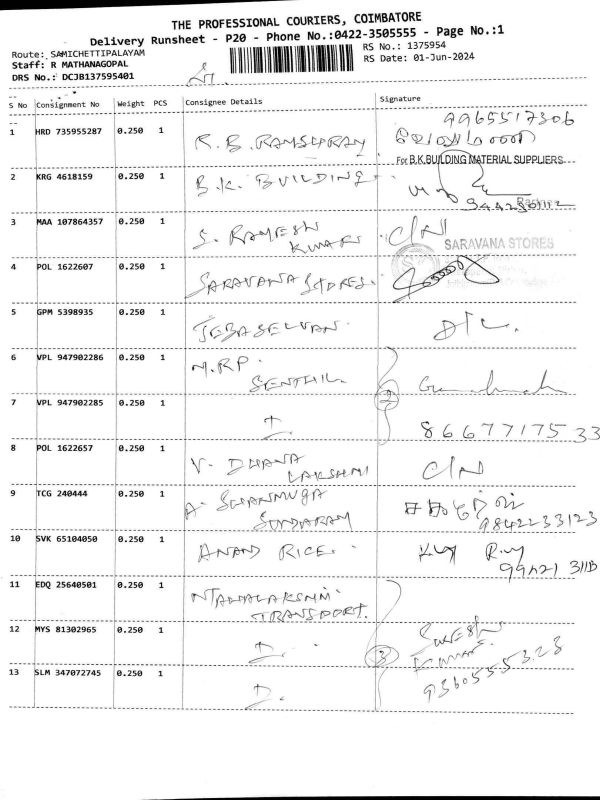 THE PROFESSIONAL COURIERS, COIMBATORE
Delivery Runsheet - P20 - Phone No.:0422-3505555 - Page No.:1
Route: SAMICHETTIPALAYAM
RS No.: 1375954
Staff: R MATHANAGOPAL
RS Date: 01-Jun-2024
DRS No.: DCJB137595401
S No Consignment No Weight PCS Consignee Details Signature
9965517306
1 HRD 735955287 0.250 1 R.B.
For B.K.BUILDING MATERIAL SUPPLIERS
2 KRG 4618159 0.250 1 B.K. BUILDING
Partner
3 MAA 107864357 0.250 1 S. RAMESH KUMAR C/N
SARAVANA STORES
4 POL 1622607 0.250 1 SARAVANA STORES.
5 GPM 5398935 0.250 1 JEBASELVAN. D/C.
6 VPL 947902286 0.250 1 M.RP. SENTHIL.
2
7 VPL 947902285 0.250 1
8667717533
8 POL 1622657 0.250 1 V. DHANA LAKSHMI C/N
9 TCG 240444 0.250 1 A. SHANMUGA SUNDARAM
9842233123
10 SVK 65104050 0.250 1 ANAND RICE.
11 EDQ 25640501 0.250 1 TRANSPORT.
12 MYS 81302965 0.250 1 3 SURESH KUMAR
9360555323
13 SLM 347072745 0.250 1